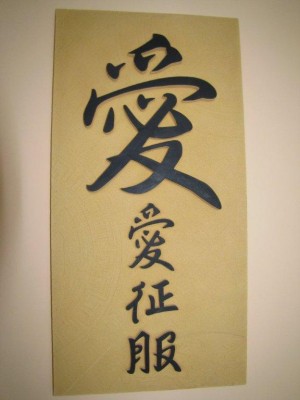 愛
愛征服